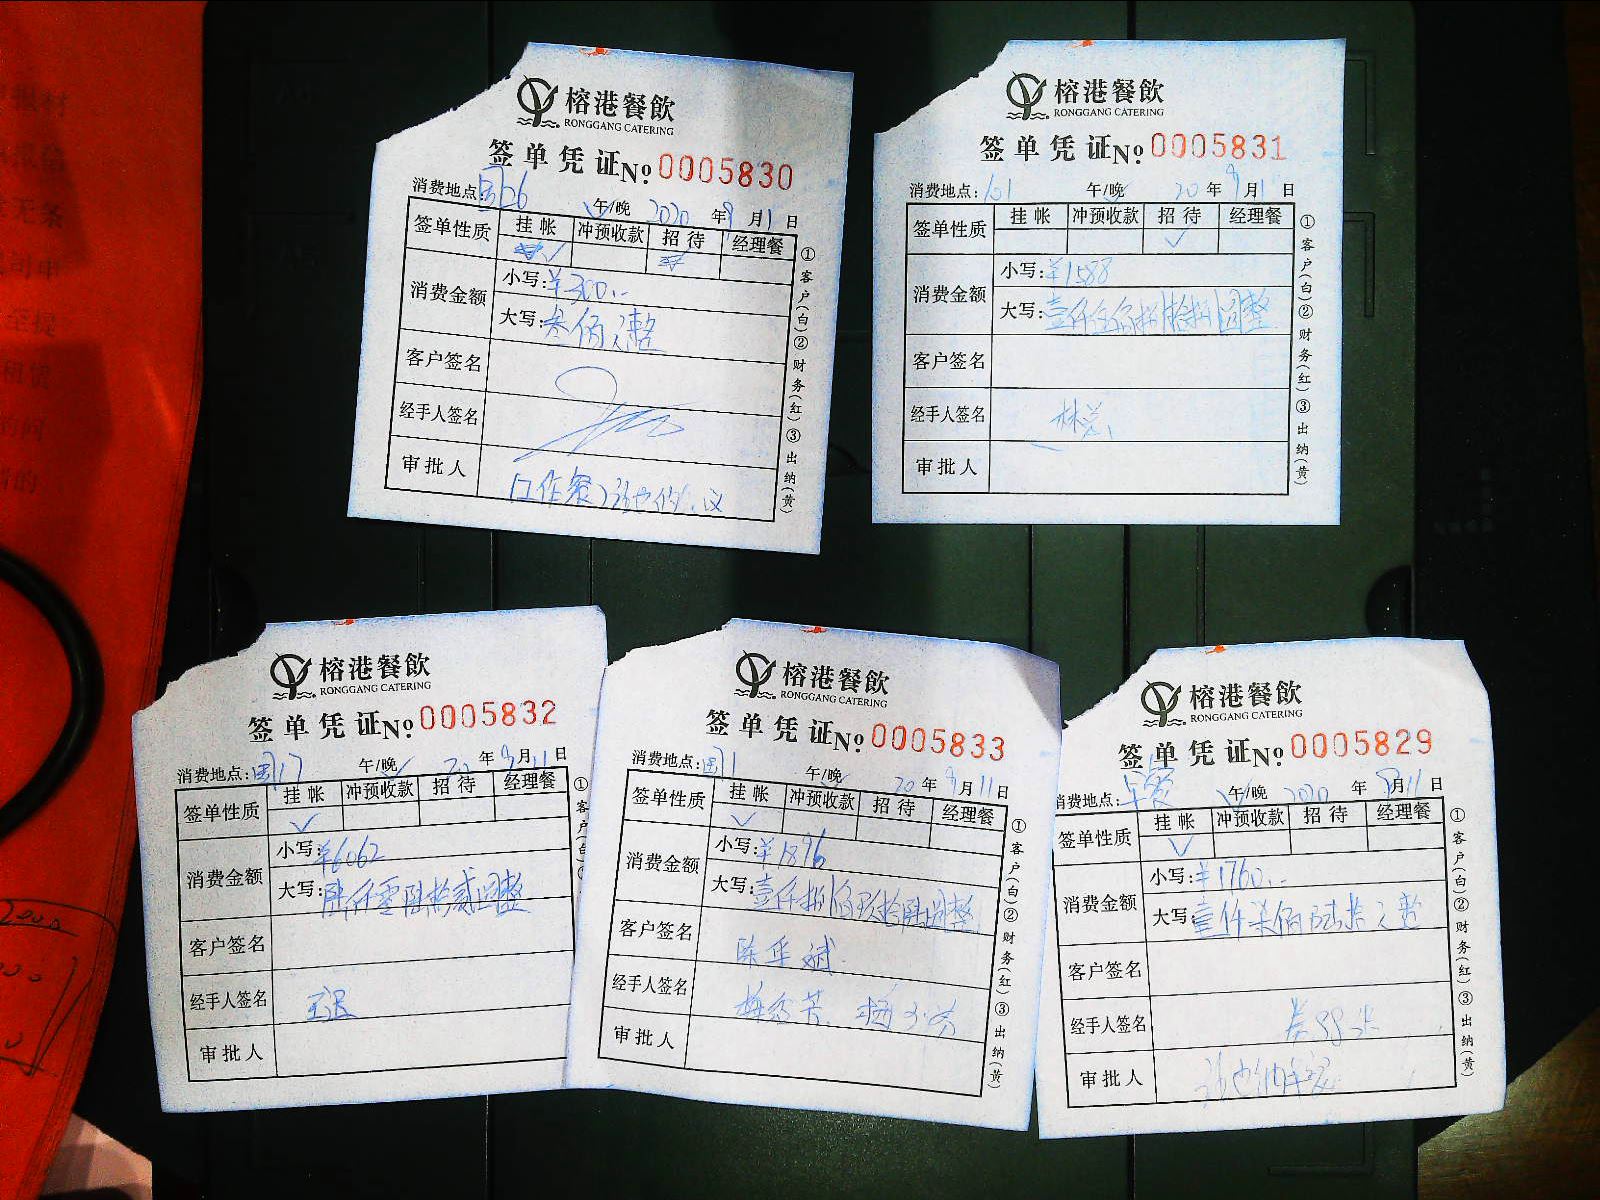 榕港餐飲
RONGGANG CATERING
签单凭证 No 0005830
消费地点: 午/晚 2020 年 9 月 11 日
签单性质 挂帐 冲预收款 招待 经理餐
消费金额 小写:¥300..
大写:叁佰元整
客户签名
经手人签名
审批人
①客户(白)②财务(红)③出纳(黄)
榕港餐飲
RONGGANG CATERING
签单凭证 No 0005831
消费地点: 午/晚 20 年 9 月 11 日
签单性质 挂帐 冲预收款 招待 经理餐
消费金额 小写:¥1588
大写:壹仟伍佰捌拾捌圆整
客户签名
经手人签名 林
审批人
①客户(白)②财务(红)③出纳(黄)
榕港餐飲
RONGGANG CATERING
签单凭证 No 0005832
消费地点: 午/晚 年 9 月 11 日
签单性质 挂帐 冲预收款 招待 经理餐
消费金额 小写:¥6062
大写:陆仟零陆拾贰圆整
客户签名
经手人签名
审批人
①客
榕港餐飲
RONGGANG CATERING
签单凭证 No 0005833
消费地点: 午/晚 20 年 9 月 11 日
签单性质 挂帐 冲预收款 招待 经理餐
消费金额 小写:¥1896
大写:壹仟捌佰玖拾陆圆整
客户签名 陈华斌
经手人签名
审批人
①客户(白)②财务(红)③出纳(黄)
榕港餐飲
RONGGANG CATERING
签单凭证 No 0005829
消费地点: 午/晚 2020 年 9 月 11 日
签单性质 挂帐 冲预收款 招待 经理餐
消费金额 小写:¥1760..
大写:壹仟柒佰陆拾元整
客户签名
经手人签名
审批人
①客户(白)②财务(红)③出纳(黄)